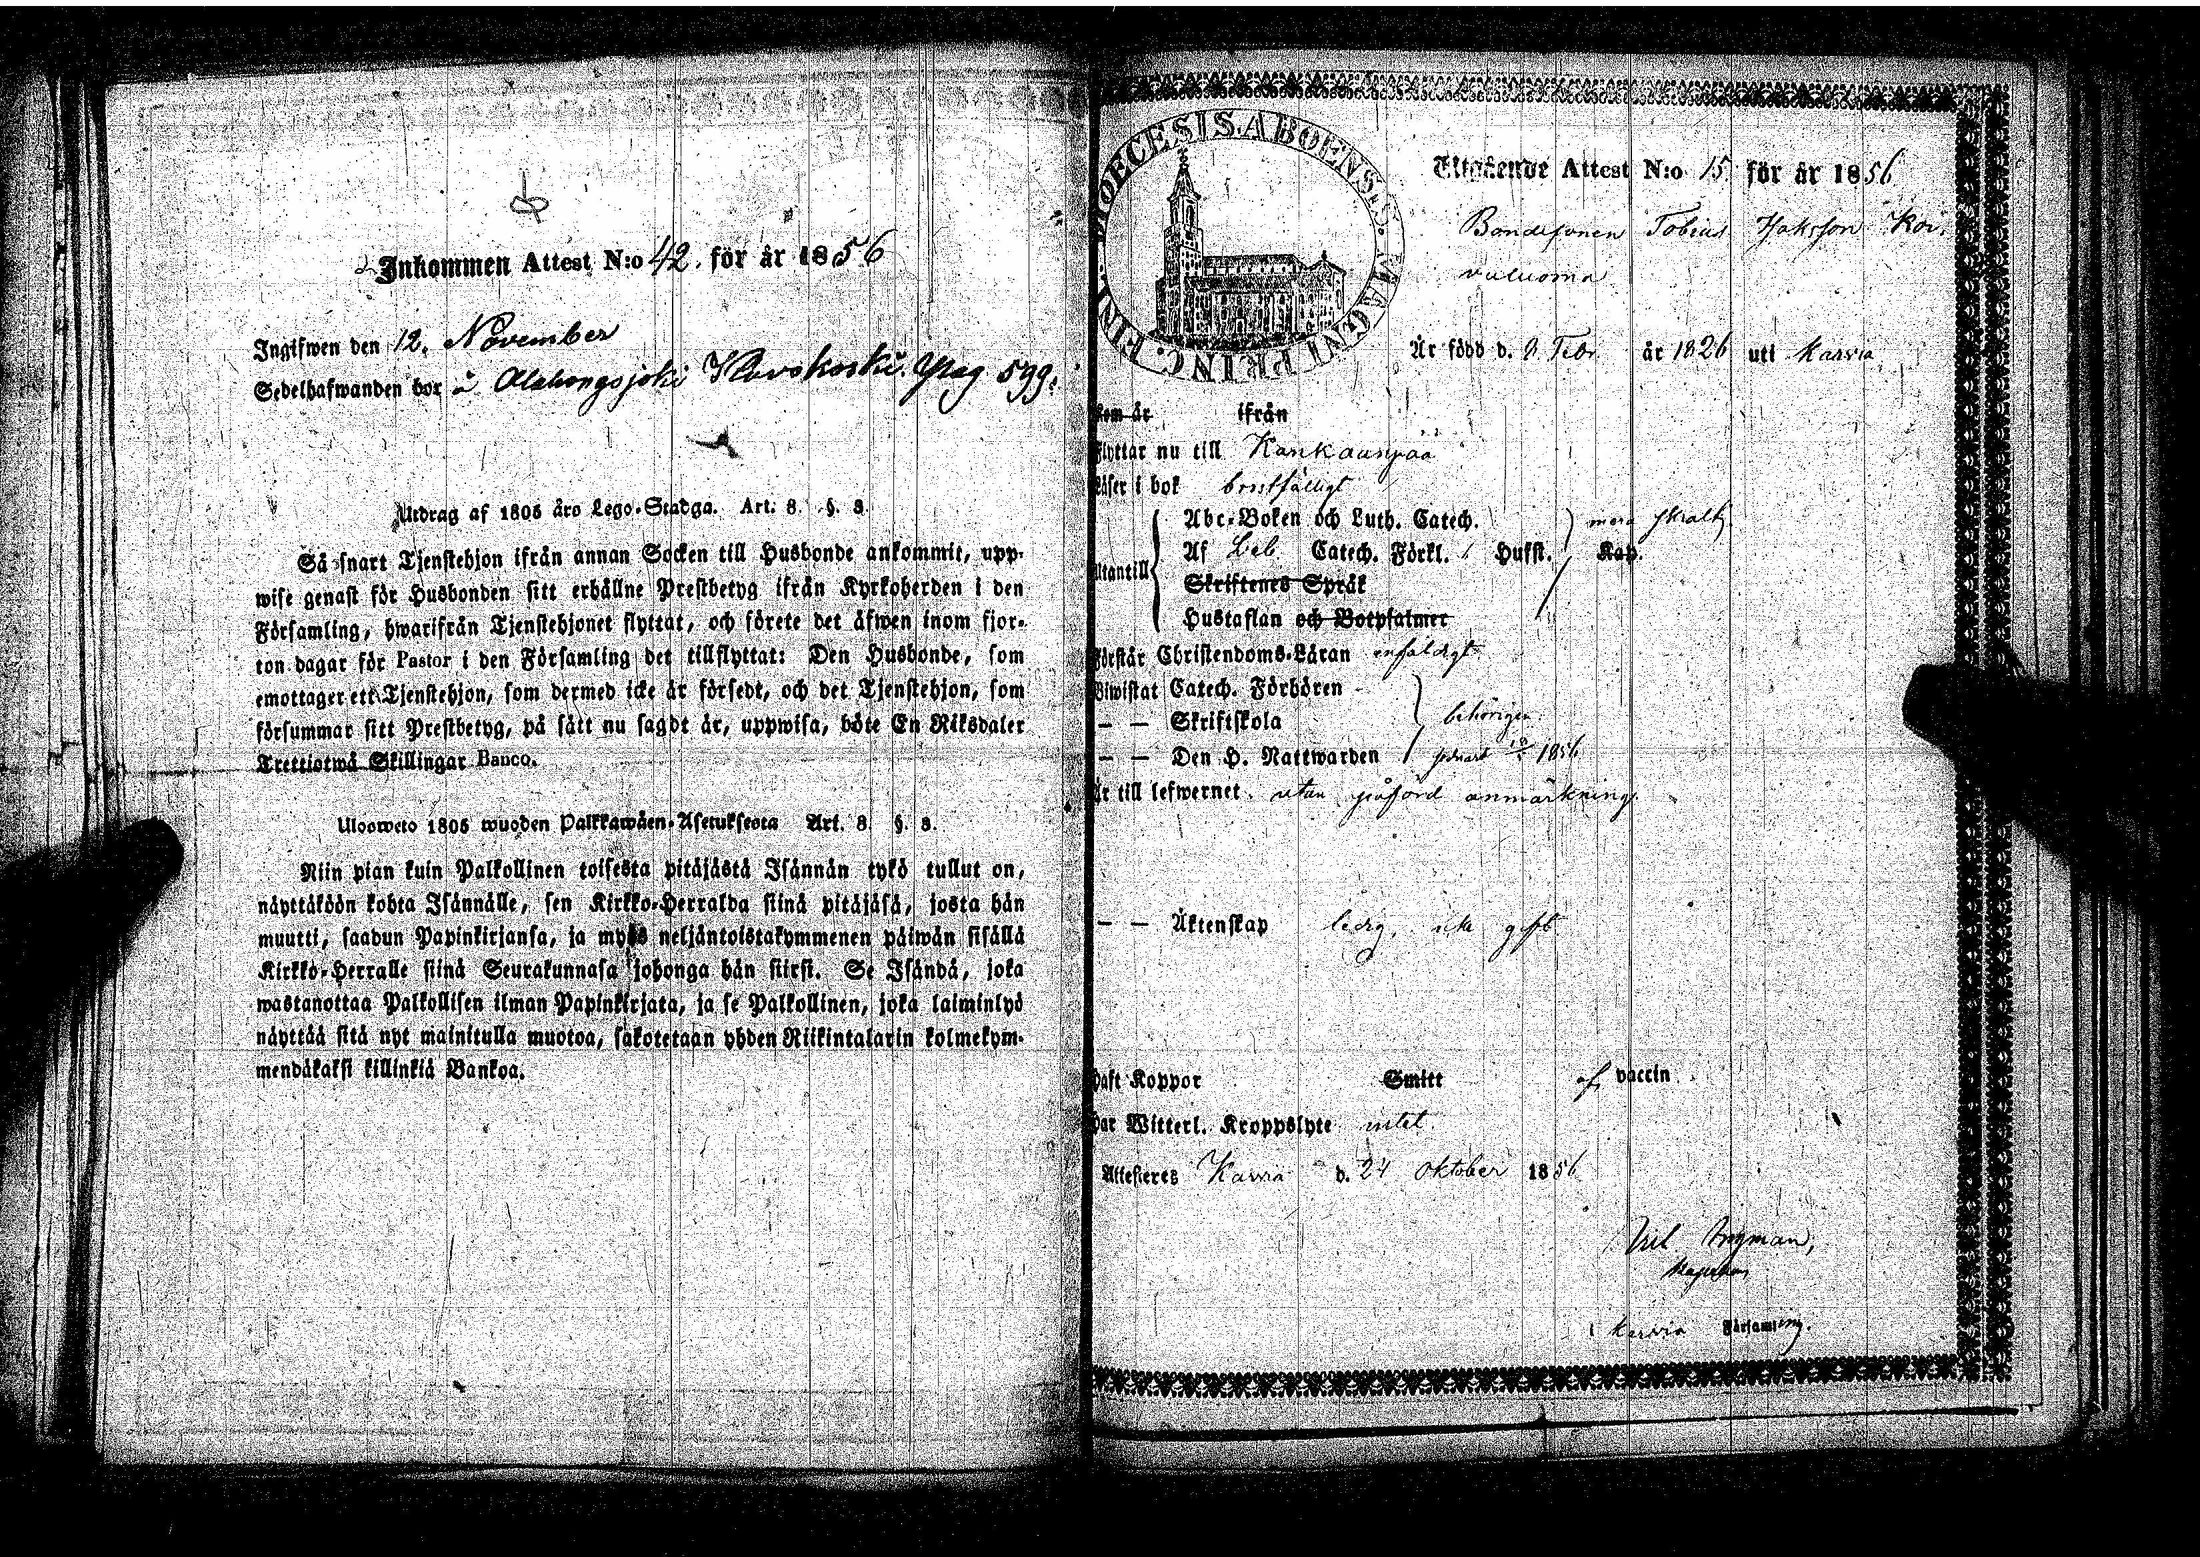 Inkommen Attest N:o 42. för år 1856
Ingifwen den 12. November
Sedelhafwanden bor å Alahongsjoki pag 599.
Utdrag af 1805 års Lego-Stadga. Art: 8. §. 8.
Så snart Tjenstehjon ifrån annan Socken till Husbonde ankommit, upp-
wise genast för Husbonden sitt erhållne Prestbetyg ifrån Kyrkoherden i den
Församling, hwarifrån Tjenstehjonet flyttat, och förete det äfwen inom fjor-
ton dagar för Pastor i den Församling det tillflyttat: Den Husbonde, som
emottager ett Tjenstehjon, som dermed icke är försedt, och det Tjenstehjon, som
försummar sitt Prestbetyg, på sätt nu sagdt är, uppwisa, böte En Riksdaler
Trettiotwå Skillingar Banco.
Ulosweto 1805 wuoden Palkkawäen-Asetuksesta Art. 8. §. 8.
Niin pian kuin Palkollinen toisesta pitäjästä Isännän tykö tullut on,
näyttäköön kohta Isännälle, sen Kirkko-Herralda siinä pitäjäsä, josta hän
muutti, saadun Papinkirjansa, ja myös neljäntoistakymmenen päiwän sisällä
Kirkko-Herralle siinä Seurakunnasa johonga hän siirsi. Se Isändä, joka
wastanottaa Palkollisen ilman Papinkirjata, ja se Palkollinen, joka laiminlyö
näyttää sitä nyt mainitulla muotoa, sakotetaan yhden Riikintalarin kolmekym-
mendäkaksi killinkiä Bankoa.
DIOECESIS ABOENSIS. MAGNI PRINC. FINL.
Utgående Attest N:o 15. för år 1856
Bondesonen Tobias Isaksson Koi-
vuluoma
Är född d. 8 Febr. år 1826 uti Karvia
Kom år ifrån
Flyttar nu till Kankaanpää
Läser i bok bristfälligt
Abc-Boken och Luth. Catech.
Utantill Af Leb. Catech. Förkl. Husst. Kap.
Skriftenes Språk
Hustaflan och Botpsalmer
Förstår Christendoms-Läran enfaldigt
Biwistat Catech. Förhören
— — Skriftskola behörigen
— — Den H. Nattwarden 1856
Är till lefwernet utan påförd anmärkning.
— — Äktenskap ledig, icke gift
Haft Koppor Smitt af vaccin
Har Witterl. Kroppslyte intet.
Attesteres Karvia d. 24 Oktober 1856
Karvia Församling.